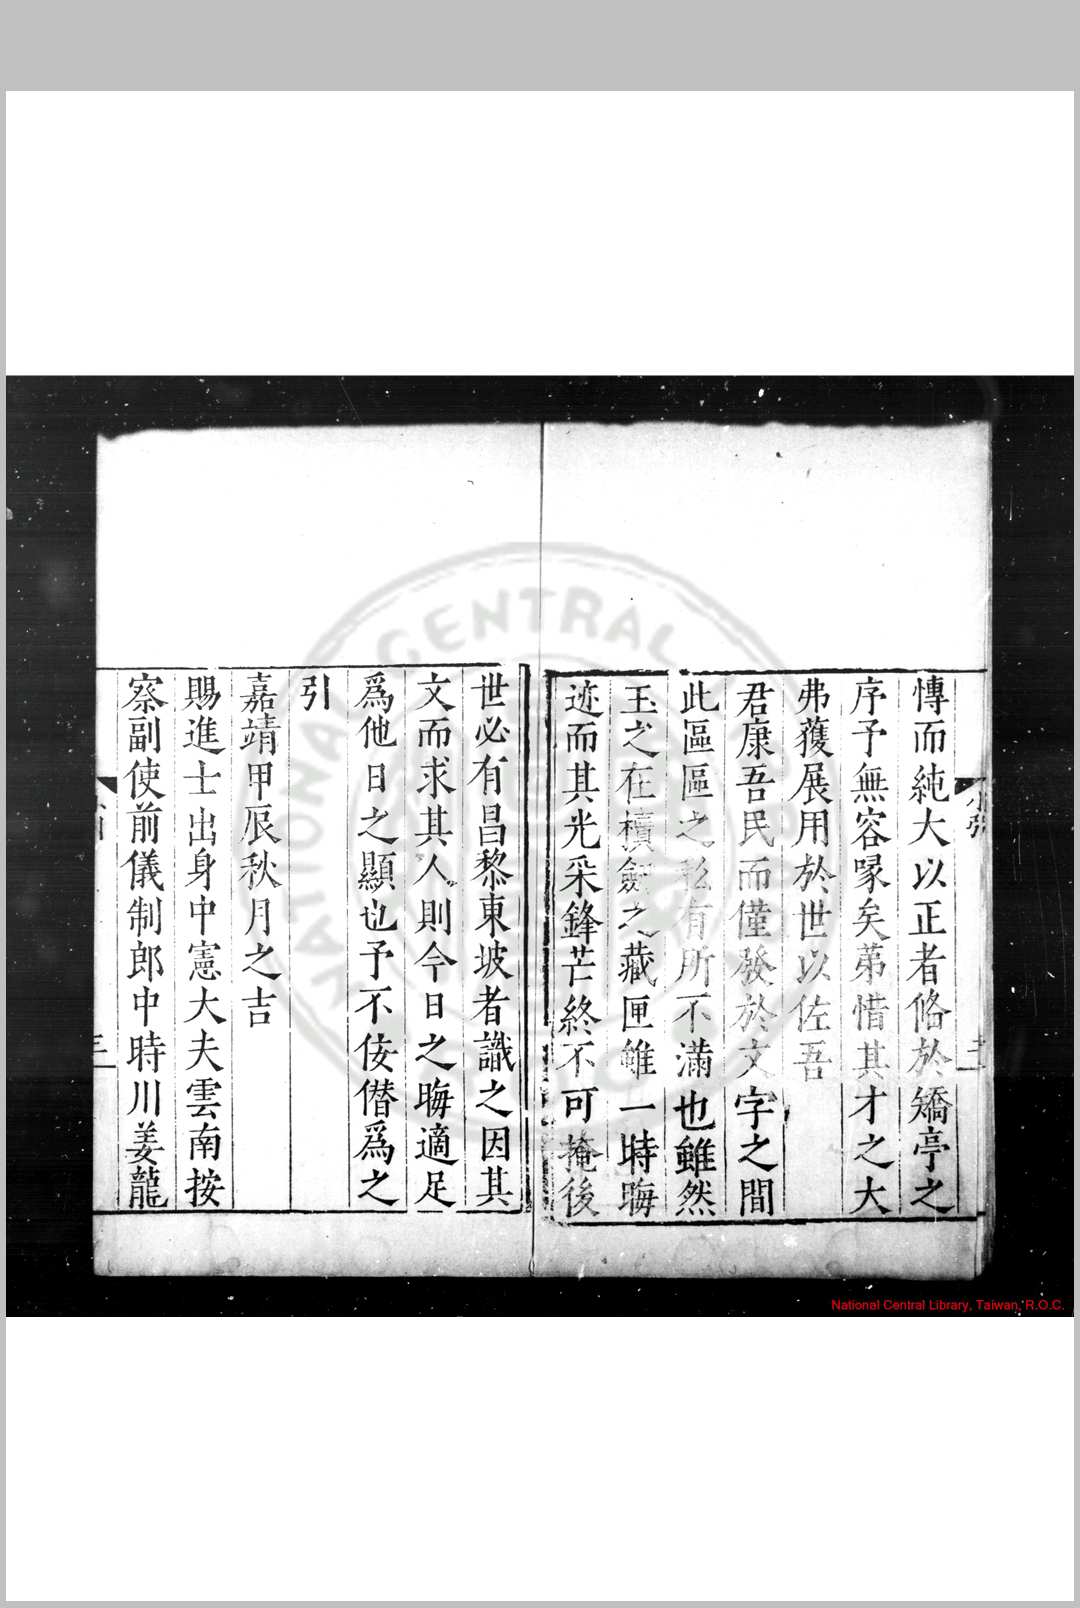 慱而純大以正者俻於矯亭之
序予無容喙矣苐惜其才之大
弗獲展用於世以佐吾
君康吾民而僅發於文字之間
此區區之私有所不滿也雖然
玉之在櫝劔之藏匣雖一時晦
迹而其光采鋒芒終不可掩後
世必有昌黎東坡者識之因其
文而求其人則今日之晦適足
爲他日之顯也予不佞僣爲之
引
嘉靖甲辰秋月之吉
賜進士出身中憲大夫雲南按
察副使前儀制郎中時川姜龍
三
NATIONAL CENTRAL LIBRARY
National Central Library, Taiwan, R.O.C.